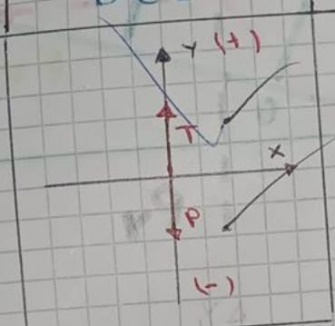 Y (+)
T
X
P
(-)